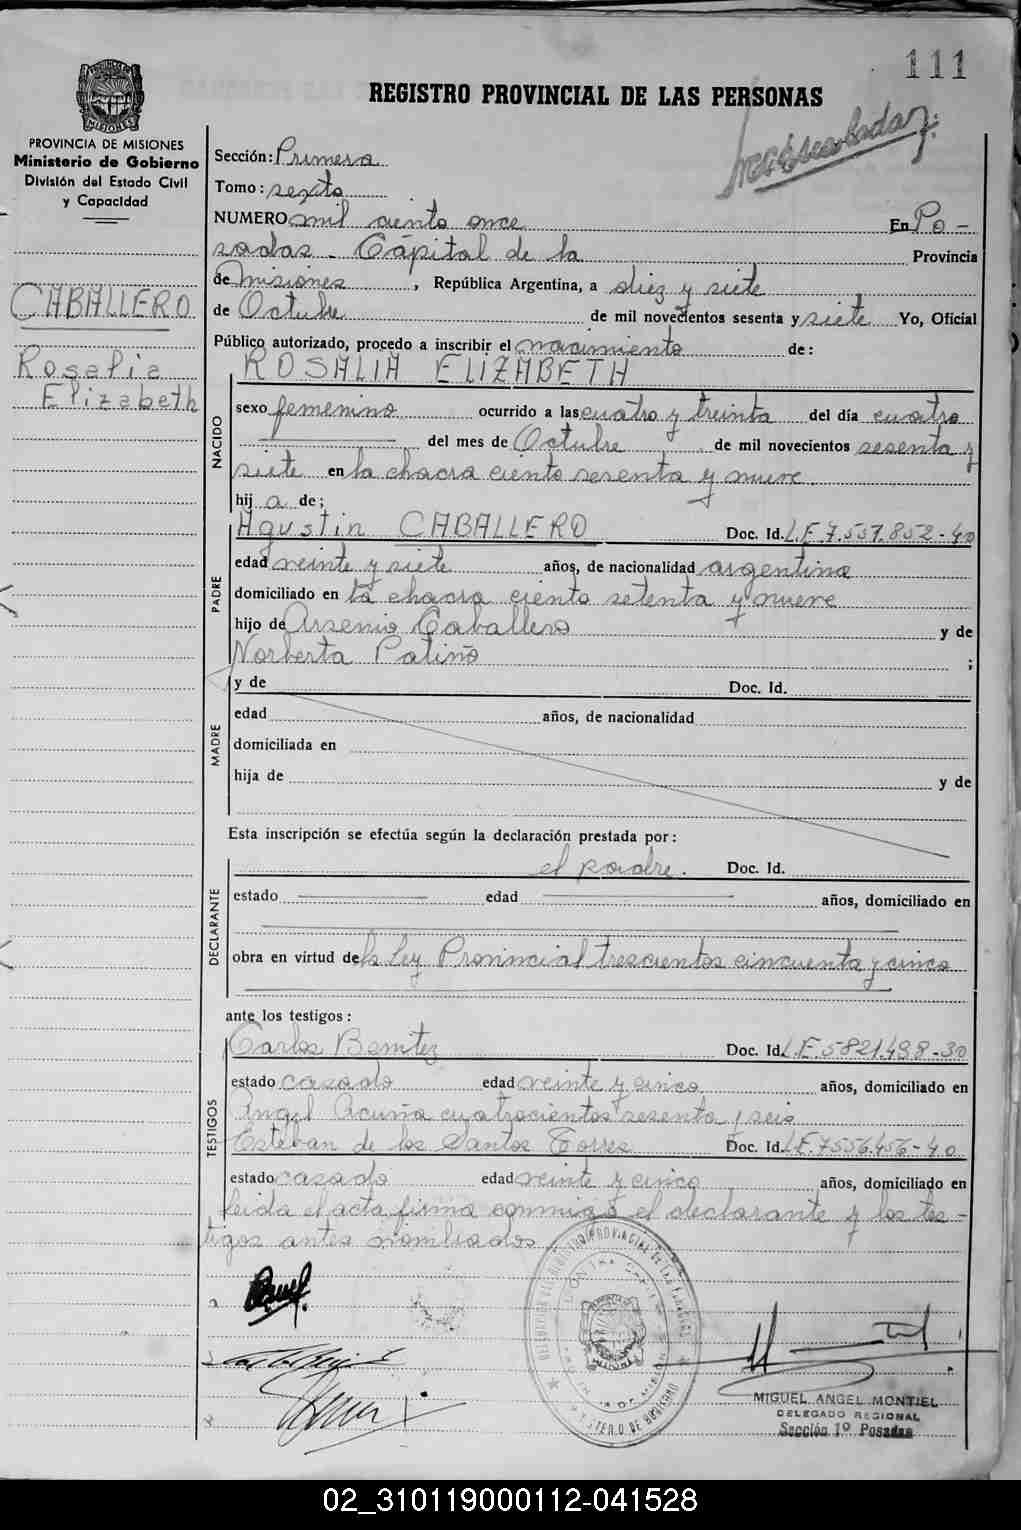 111
REGISTRO PROVINCIAL DE LAS PERSONAS
PROVINCIA DE MISIONES
Ministerio de Gobierno
División del Estado Civil
y Capacidad
Sección: Primera
Tomo: sexto
NUMERO mil ciento once En Po-
sadas. Cápital de la Provincia
de misiones, República Argentina, a diez y siete
CABALLERO
de Octubre de mil novecientos sesenta y siete Yo, Oficial
Público autorizado, procedo a inscribir el nacimiento de:
Rosalia
Elizabeth
ROSALIA ELIZABETH
NACIDO
sexo femenino ocurrido a las cuatro y treinta del día cuatro
del mes de Octubre de mil novecientos sesenta y
siete en la chacra ciento sesenta y nueve.
hij a de;
PADRE
Agustin CABALLERO Doc. Id. L.E. 7.557.852-40
edad veinte y siete años, de nacionalidad argentina
domiciliado en la chacra ciento setenta y nueve
hijo de Arsenio Caballero y de
Norberta Patiño ;
MADRE
y de Doc. Id.
edad años, de nacionalidad
domiciliada en
hija de y de
Esta inscripción se efectúa según la declaración prestada por:
DECLARANTE
el padre. Doc. Id.
estado edad años, domiciliado en
obra en virtud de la Ley Provincial trescientos cincuenta y cinco
ante los testigos:
TESTIGOS
Carlos Benitez Doc. Id. L.E. 5821.498-30
estado casado edad veinte y cinco años, domiciliado en
Angel Acuña cuatrocientos sesenta y seis
Esteban de los Santos Torres Doc. Id. L.E. 7556.456-40
estado casado edad veinte y cinco años, domiciliado en
leida el acta firma conmigo el declarante y los tes-
tigos antes nombrados
MIGUEL ANGEL MONTIEL
DELEGADO REGIONAL
Sección 1º Posadas
02_310119000112-041528